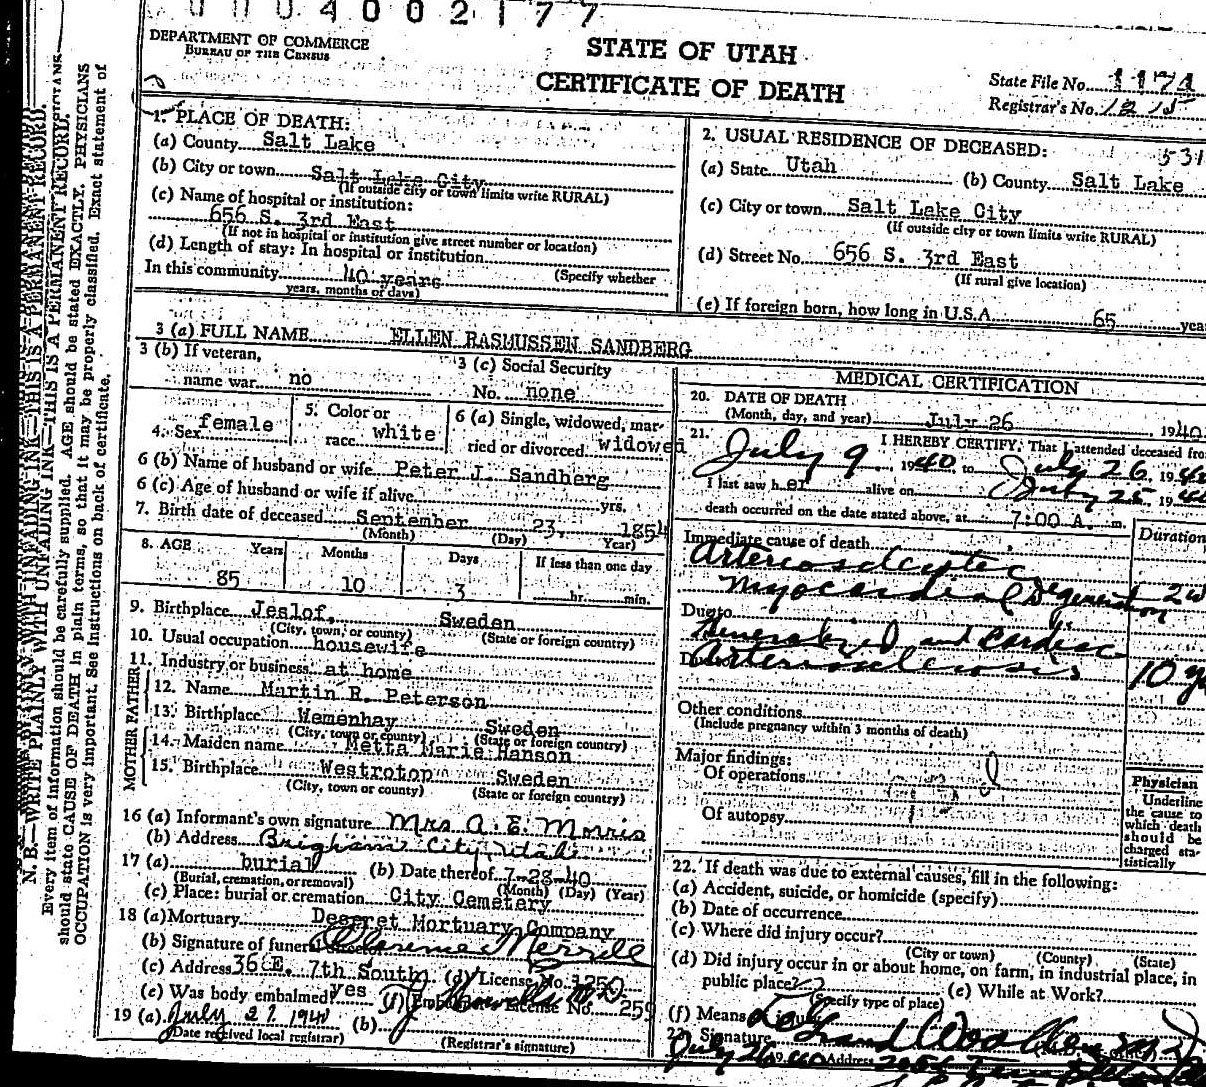 0004002177
DEPARTMENT OF COMMERCE
BUREAU OF THE CENSUS
STATE OF UTAH
CERTIFICATE OF DEATH
State File No. 1174
Registrar's No. 1215
N. B.—WRITE PLAINLY WITH UNFADING INK—THIS IS A PERMANENT RECORD.
Every item of information should be carefully supplied. AGE should be stated EXACTLY. PHYSICIANS
should state CAUSE OF DEATH in plain terms, so that it may be properly classified. Exact statement of
OCCUPATION is very important. See instructions on back of certificate.
1. PLACE OF DEATH:
(a) County Salt Lake
(b) City or town Salt Lake City
(If outside city or town limits write RURAL)
(c) Name of hospital or institution:
656 S. 3rd East
(If not in hospital or institution give street number or location)
(d) Length of stay: In hospital or institution
In this community 40 years (Specify whether
years, months or days)
2. USUAL RESIDENCE OF DECEASED: 531
(a) State Utah (b) County Salt Lake
(c) City or town Salt Lake City
(If outside city or town limits write RURAL)
(d) Street No. 656 S. 3rd East
(If rural give location)
(e) If foreign born, how long in U.S.A. 65 yea
3 (a) FULL NAME ELLEN RASMUSSEN SANDBERG
3 (b) If veteran,
name war no
3 (c) Social Security
No. none
4. Sex female
5. Color or
race white
6 (a) Single, widowed, mar-
ried or divorced widowed
6 (b) Name of husband or wife Peter J. Sandberg
6 (c) Age of husband or wife if alive yrs.
7. Birth date of deceased September 23, 1854
(Month) (Day) Year)
8. AGE Years Months Days If less than one day
85 10 3 hr. min.
9. Birthplace Jeslof, Sweden
(City, town, or county) (State or foreign country)
10. Usual occupation housewife
11. Industry or business at home
FATHER
12. Name Martin R. Peterson
13. Birthplace Wemenhay Sweden
(City, town or county) (State or foreign country)
MOTHER
14. Maiden name Metta Marie Hanson
15. Birthplace Westrotop Sweden
(City, town or county) (State or foreign country)
16 (a) Informant's own signature Mrs A. E. Morris
(b) Address Brigham City, Utah
17 (a) burial (b) Date thereof 7-28-40
(Burial, cremation, or removal) (Month) (Day) (Year)
(c) Place: burial or cremation City Cemetery
18 (a) Mortuary Deseret Mortuary Company
(b) Signature of funeral Merrill
(c) Address 36 E. 7th South (d) License No. 1250
(e) Was body embalmed? yes (f) Embalmer's License No. 259
19 (a) July 27 1940 (b)
(Date received local registrar) (Registrar's signature)
MEDICAL CERTIFICATION
20. DATE OF DEATH
(Month, day, and year) July 26, 1940
21. I HEREBY CERTIFY, That I attended deceased fro
July 9, 1940 to July 26, 194
I last saw her alive on July 25, 194
death occurred on the date stated above, at 7:00 A. m.
Immediate cause of death Duration
Arteriosclerotic
Myocardial Degeneration
Due to
Generalized and Cardiac
Arteriosclerosis 10 y
Other conditions
(Include pregnancy within 3 months of death)
Major findings:
Of operations
Of autopsy
Physician
Underline
the cause to
which death
should be
charged sta-
tistically
22. If death was due to external causes, fill in the following:
(a) Accident, suicide, or homicide (specify)
(b) Date of occurrence
(c) Where did injury occur?
(City or town) (County) (State)
(d) Did injury occur in or about home, on farm, in industrial place, in
public place?
(Specify type of place) (e) While at Work?
(f) Means of injury
23. Signature
July 26 1940 Address